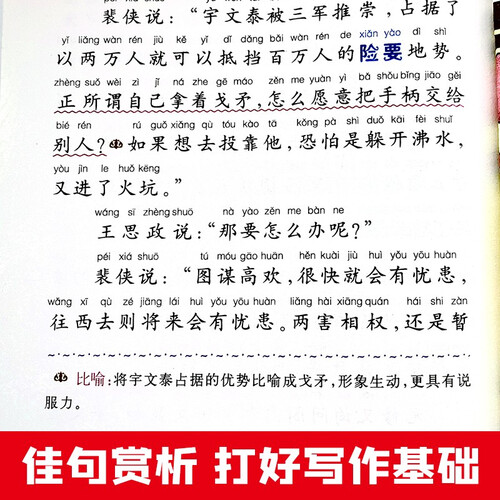 裴侠说：“宇文泰被三军推崇，占据了
yǐ liǎng wàn rén jiù kě yǐ dǐ dǎng bǎi wàn rén de xiǎn yào dì shì
以两万人就可以抵挡百万人的险要地势。
zhèng suǒ wèi zì jǐ ná zhe gē máo zěn me yuàn yì bǎ shǒu bǐng jiāo gěi
正所谓自己拿着戈矛，怎么愿意把手柄交给
bié rén rú guǒ xiǎng qù tóu kào tā kǒng pà shì duǒ kāi fèi shuǐ
别人？如果想去投靠他，恐怕是躲开沸水，
yòu jìn le huǒ kēng
又进了火坑。”
wáng sī zhèng shuō nà yào zěn me bàn ne
王思政说：“那要怎么办呢？”
péi xiá shuō tú móu gāo huān hěn kuài jiù huì yǒu yōu huàn
裴侠说：“图谋高欢，很快就会有忧患，
wǎng xī qù zé jiāng lái huì yǒu yōu huàn liǎng hài xiāng quán hái shì zàn
往西去则将来会有忧患。两害相权，还是暂
比喻：将宇文泰占据的优势比喻成戈矛，形象生动，更具有说
服力。
佳句赏析 打好写作基础